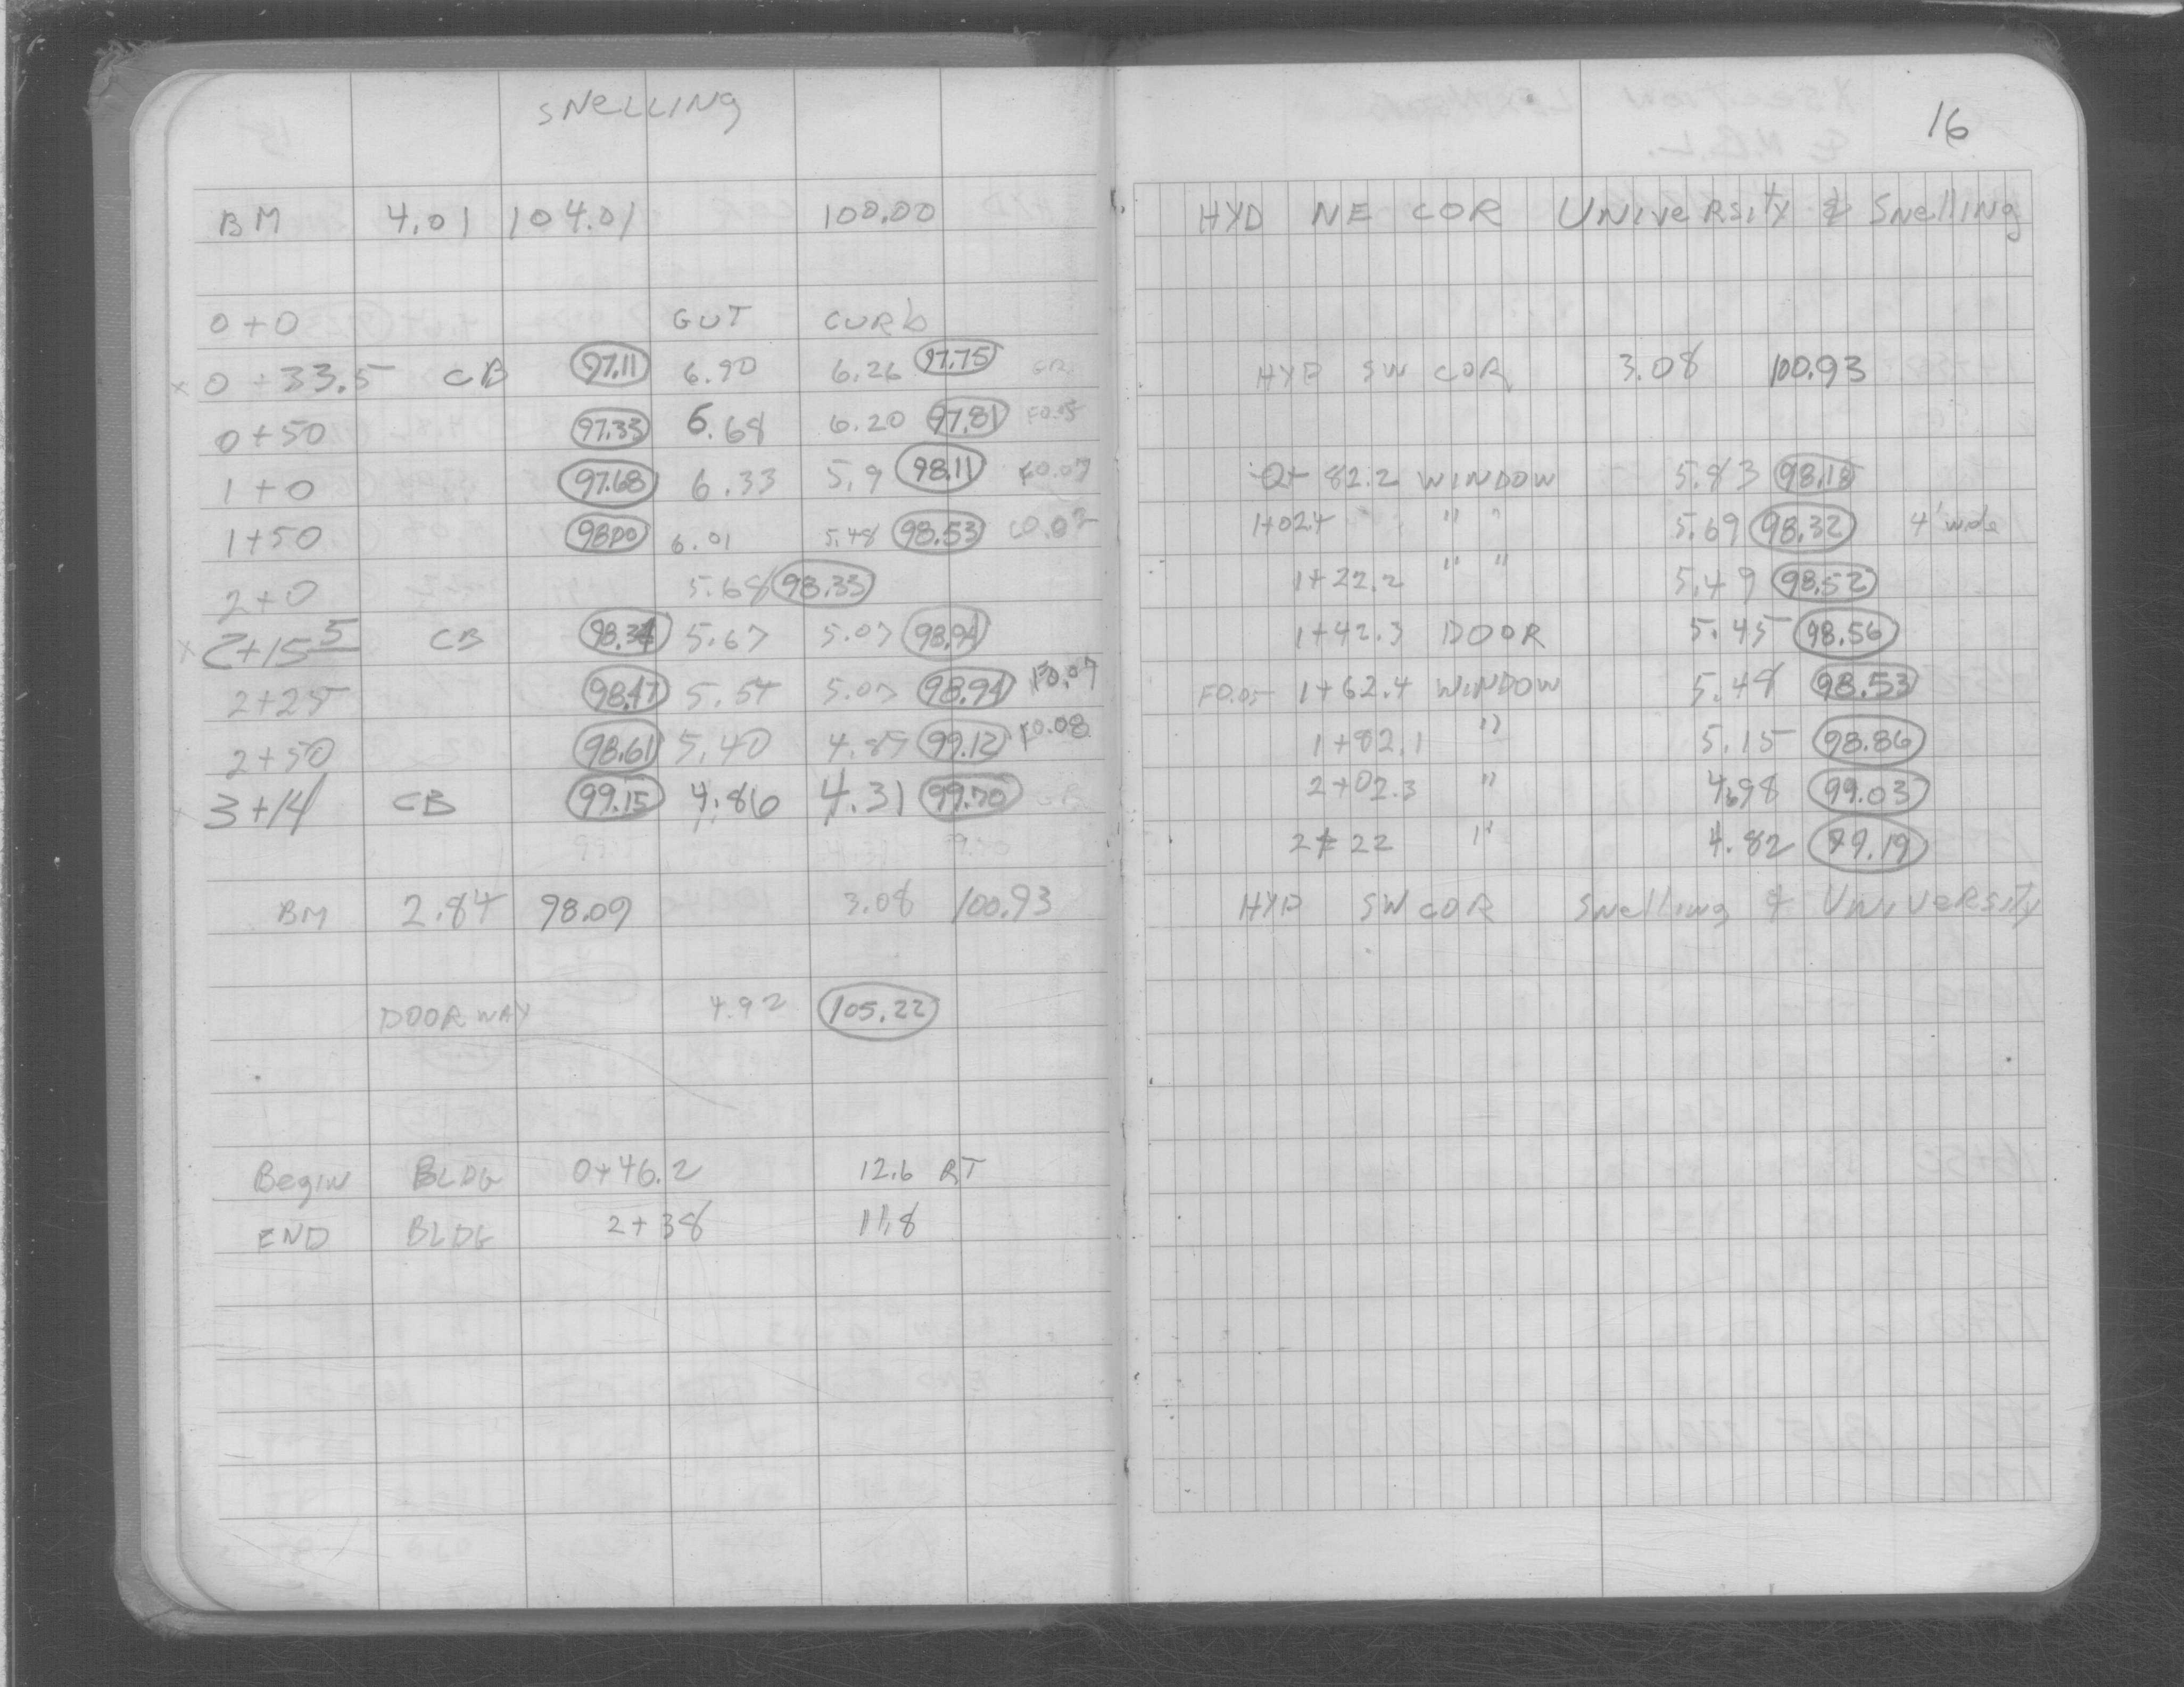 SNELLING
BM 4.01 104.01 100.00
0+0 GUT CURb
x 0+33.5 CB 97.11 6.90 6.26 97.75
0+50 97.33 6.68 6.20 97.81 F0.05
1+0 97.68 6.33 5.9 98.11 F0.07
1+50 98.00 6.01 5.48 98.53
2+0 5.68 98.33
x 2+15 5 CB 98.34 5.67 5.07 98.94
2+25 98.47 5.54 5.07 98.94 F0.07
2+50 98.61 5.40 4.89 99.12 F0.08
3+14 CB 99.15 4.86 4.31 99.70
BM 2.84 98.09 3.08 100.93
DOORWAY 4.92 105.22
Begin BLDG 0+46.2 12.6 RT
END BLDG 2+38 11.8
16
HYD NE COR UNIVERSITY & SNelliNg
HYD SW COR 3.08 100.93
0+ 82.2 WINDOW 5.83 98.18
1+02.4 " " 5.69 98.32 4' wide
1+22.2 " " 5.49 98.52
1+42.3 DOOR 5.45 98.56
F0.05 1+62.4 WINDOW 5.48 98.53
1+82.1 " 5.15 98.86
2+02.3 " 4.98 99.03
2+22 " 4.82 99.19
HYD SW COR SNelliNg & UNIVERSITY